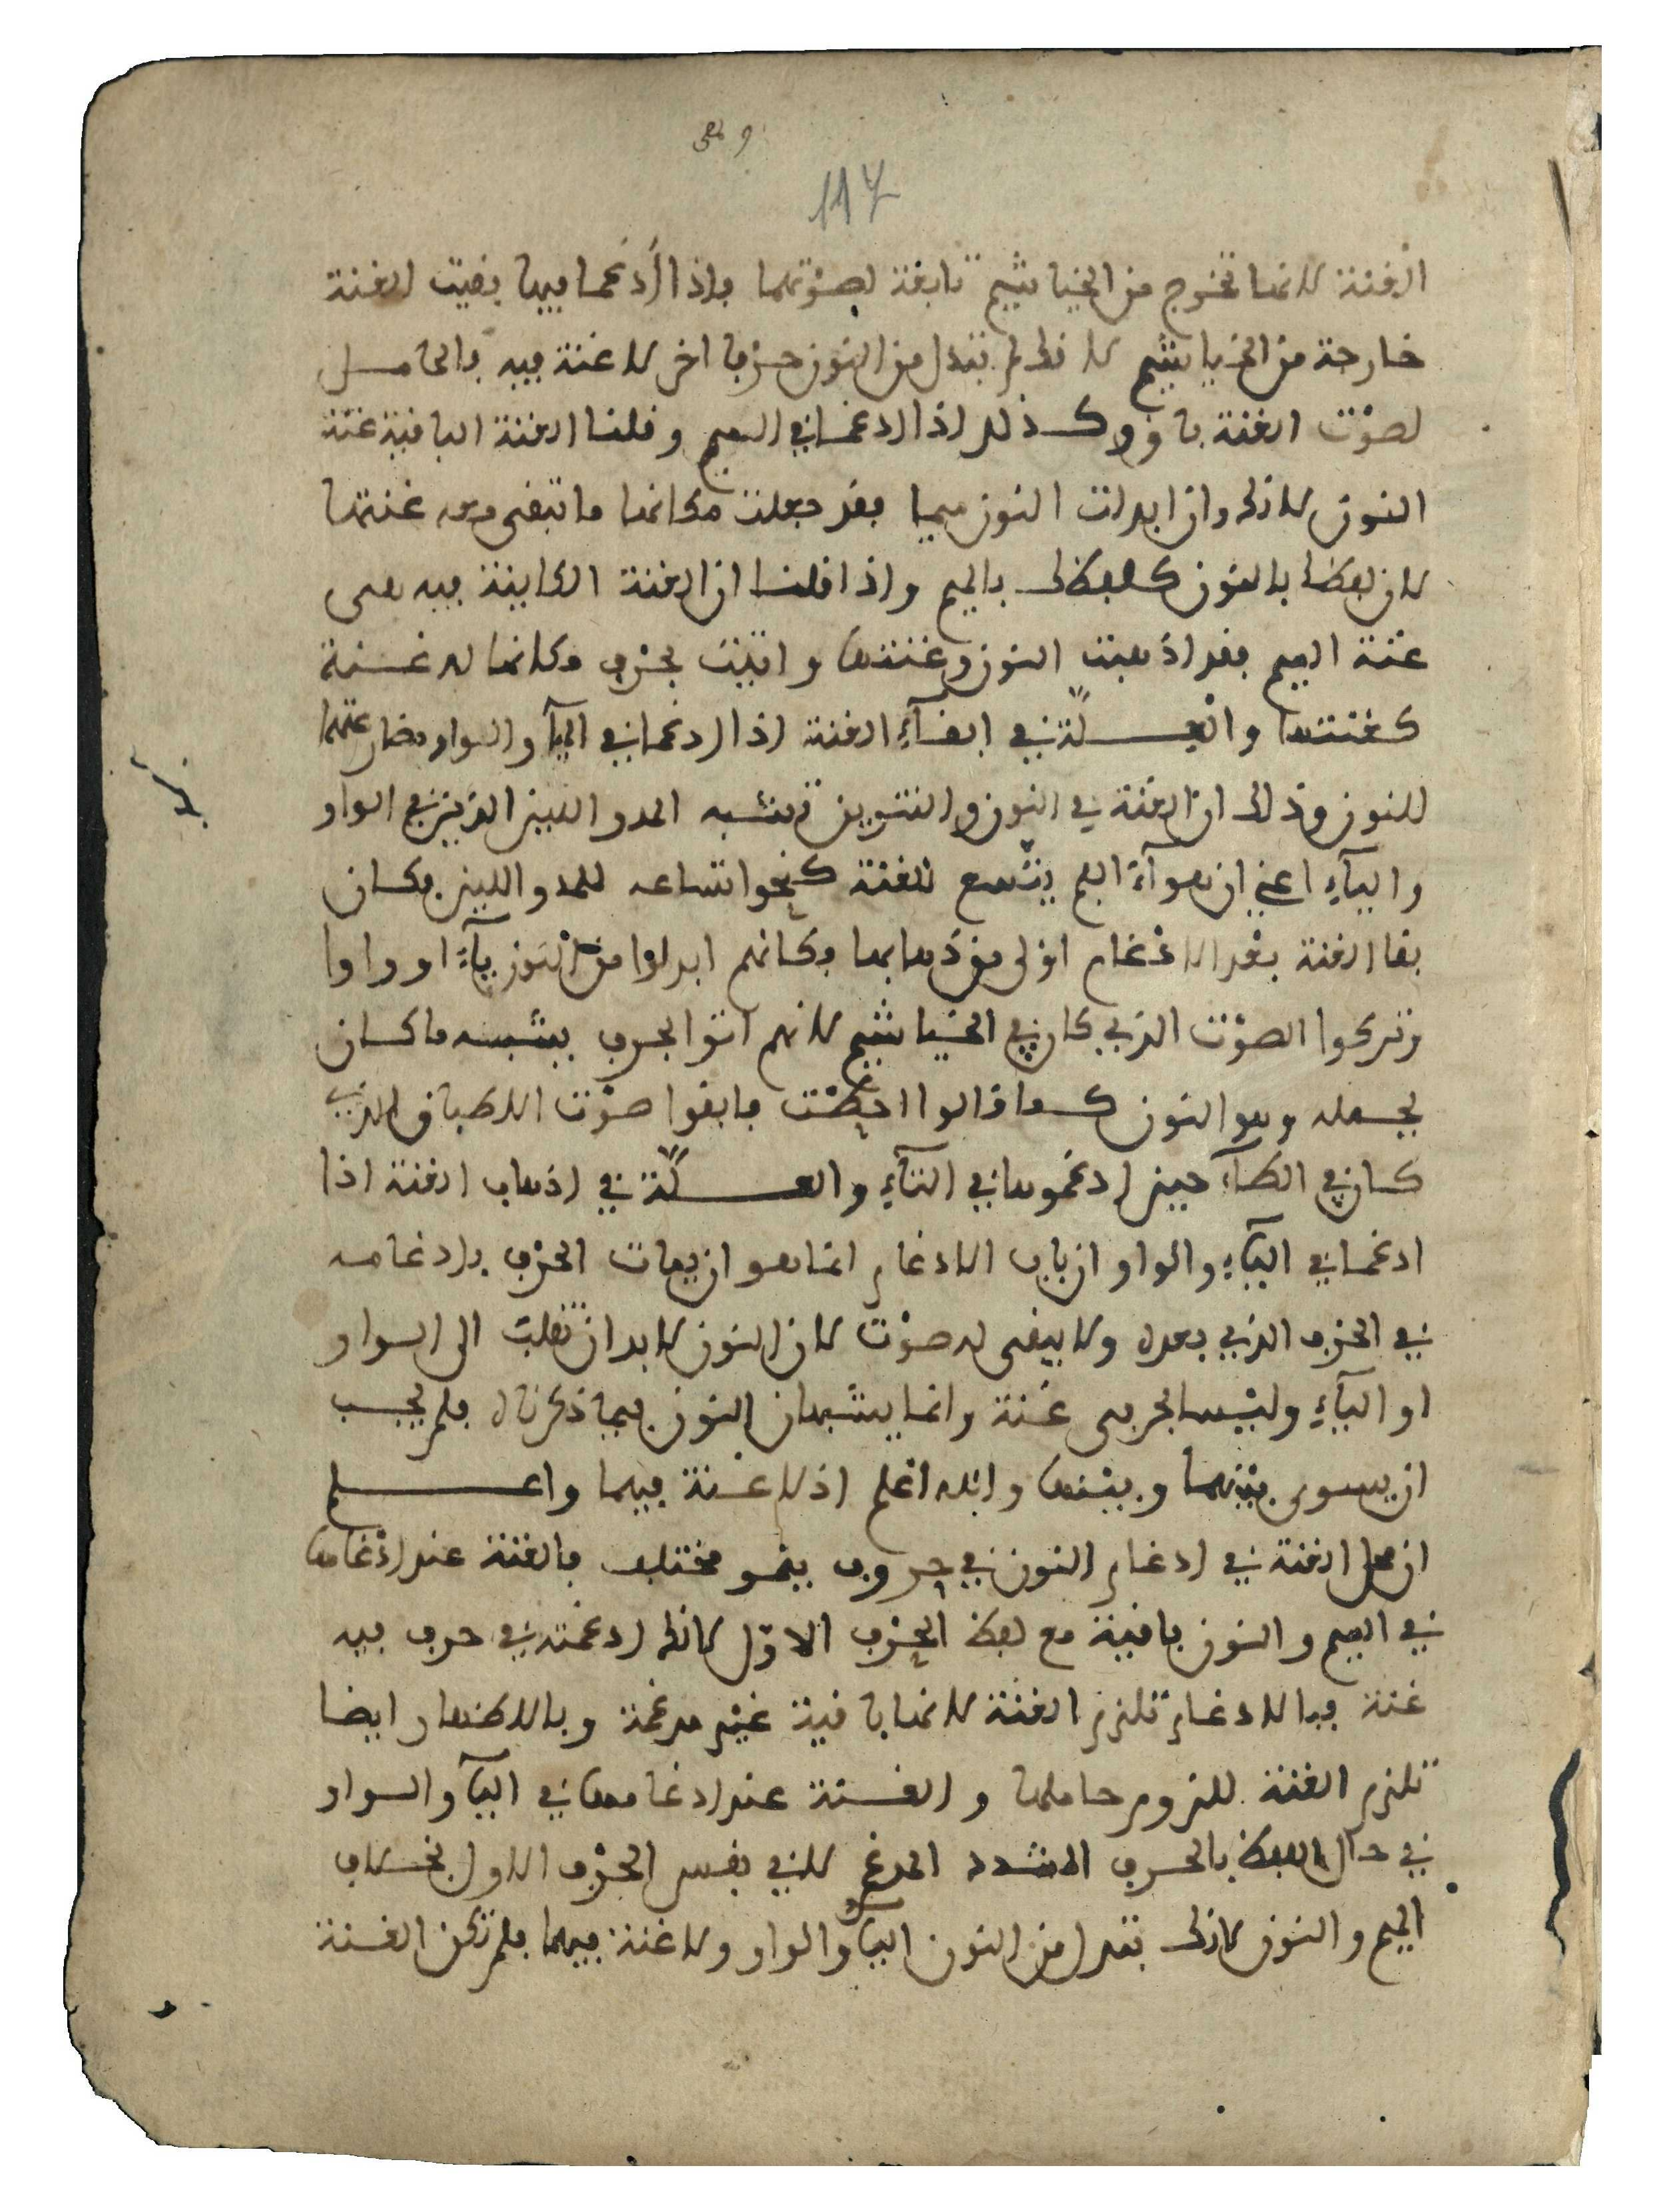 117
الغنة لانها تخرج من الخياشيم تابعة لصوتهما فاذا أدغما فيها بقيت الغنة
خارجة من الخياشيم لانك لم تبدل من النون حرفا اخر لا غنة فيه فالحامل
لصوت الغنة باق وكذلك اذا ادغما في الميم وقلنا الغنة الباقية غنة
النون لانك وان ابدلت النون ميما فقد جعلت مكانها ما تبقى معه غنتها
لان لفظك بالنون كلفظك بالميم واذا قلنا ان الغنة الكاينة فيه هى
غنة الميم فقد اذهبت النون وغنتها واتيت بحرف مكانها له غنة
كغنتها والعلة في ابقآء الغنة اذا ادغما في اليآ والواو مضارعتهما
للنون وذلك ان الغنة في النون والتنوين تشبه المد واللين الذين في الواو
واليآء اعني ان هوآء الفم يتسع للغنة كنحو اتساعه للمد واللين فكان
بقا الغنة بعد الادغام اولى من ذهابها فكانهم ابدلوا من النون يآء او واوا
وتركوا الصوت الذي كان في الخياشيم لانهم اتوا بحرف يشبه ما كان
يحمله وهو النون كما قالوا احطت فابقوا صوت الاطباق الذي
كان في الطآء حين ادغموها في التآء والعلة في اذهاب الغنة اذا
ادغما في اليآء والواو ان باب الادغام انما هو ان يعات الحرف بادغامه
في الحرف الذي بعده ولا يبقى له صوت لان النون لابد ان تقلب الى الواو
او اليآء وليسا بحرفى غنة وانما يشبهان النون فيما ذكرناه فلم يجب
ان يسوى بينهما وبينها والله اعلم اذ لا غنة فيهما واعلم
ان محل الغنة في ادغام النون في حروف ينمو مختلف فالغنة عند ادغامها
في الميم والنون باقية مع لفظ الحرف الاول لانك ادغمته في حرف فيه
غنة فبالادغام تلزم الغنة لانها باقية غير مدغمة وبالاظهار ايضا
تلزم الغنة للزوم حاملها والغنة عند ادغامها في اليآ والواو
في حال اللفظ بالحرف المشدد المدغم لا في نفس الحرف الاول بخلاف
الميم والنون لانك تبدل من النون اليآ والواو ولا غنة فيهما فلم تكن الغنة